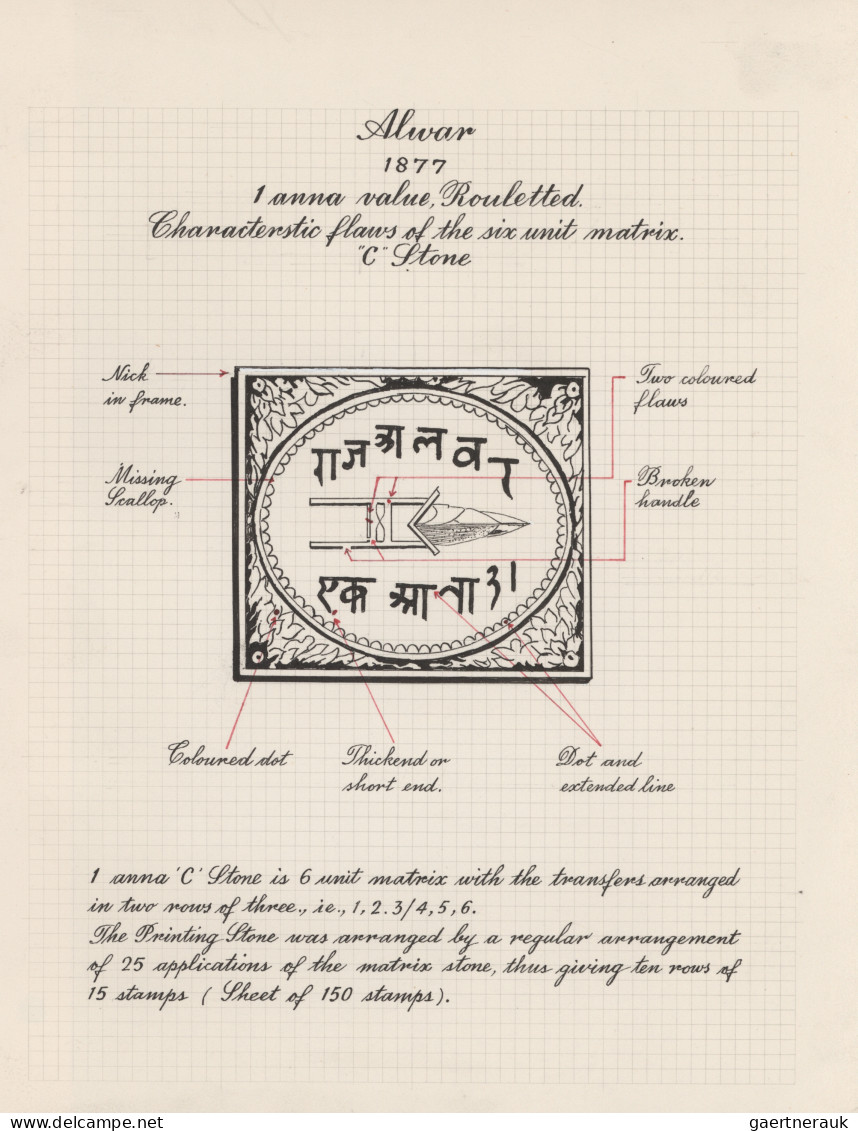 Alwar
1877
1 anna value, Rouletted.
Characterstic flaws of the six unit matrix.
"C" Stone
Nick
in frame.
Two coloured
flaws
Missing
Scallop.
Broken
handle
राज अलवर
एक आना ३।
Coloured dot
Thickend or
short end.
Dot and
extended line
1 anna 'C' Stone is 6 unit matrix with the transfers arranged
in two rows of three., ie., 1, 2. 3/4, 5, 6.
The Printing Stone was arranged by a regular arrangement
of 25 applications of the matrix stone, thus giving ten rows of
15 stamps ( Sheet of 150 stamps).
www.delcampe.net
gaertnerauk